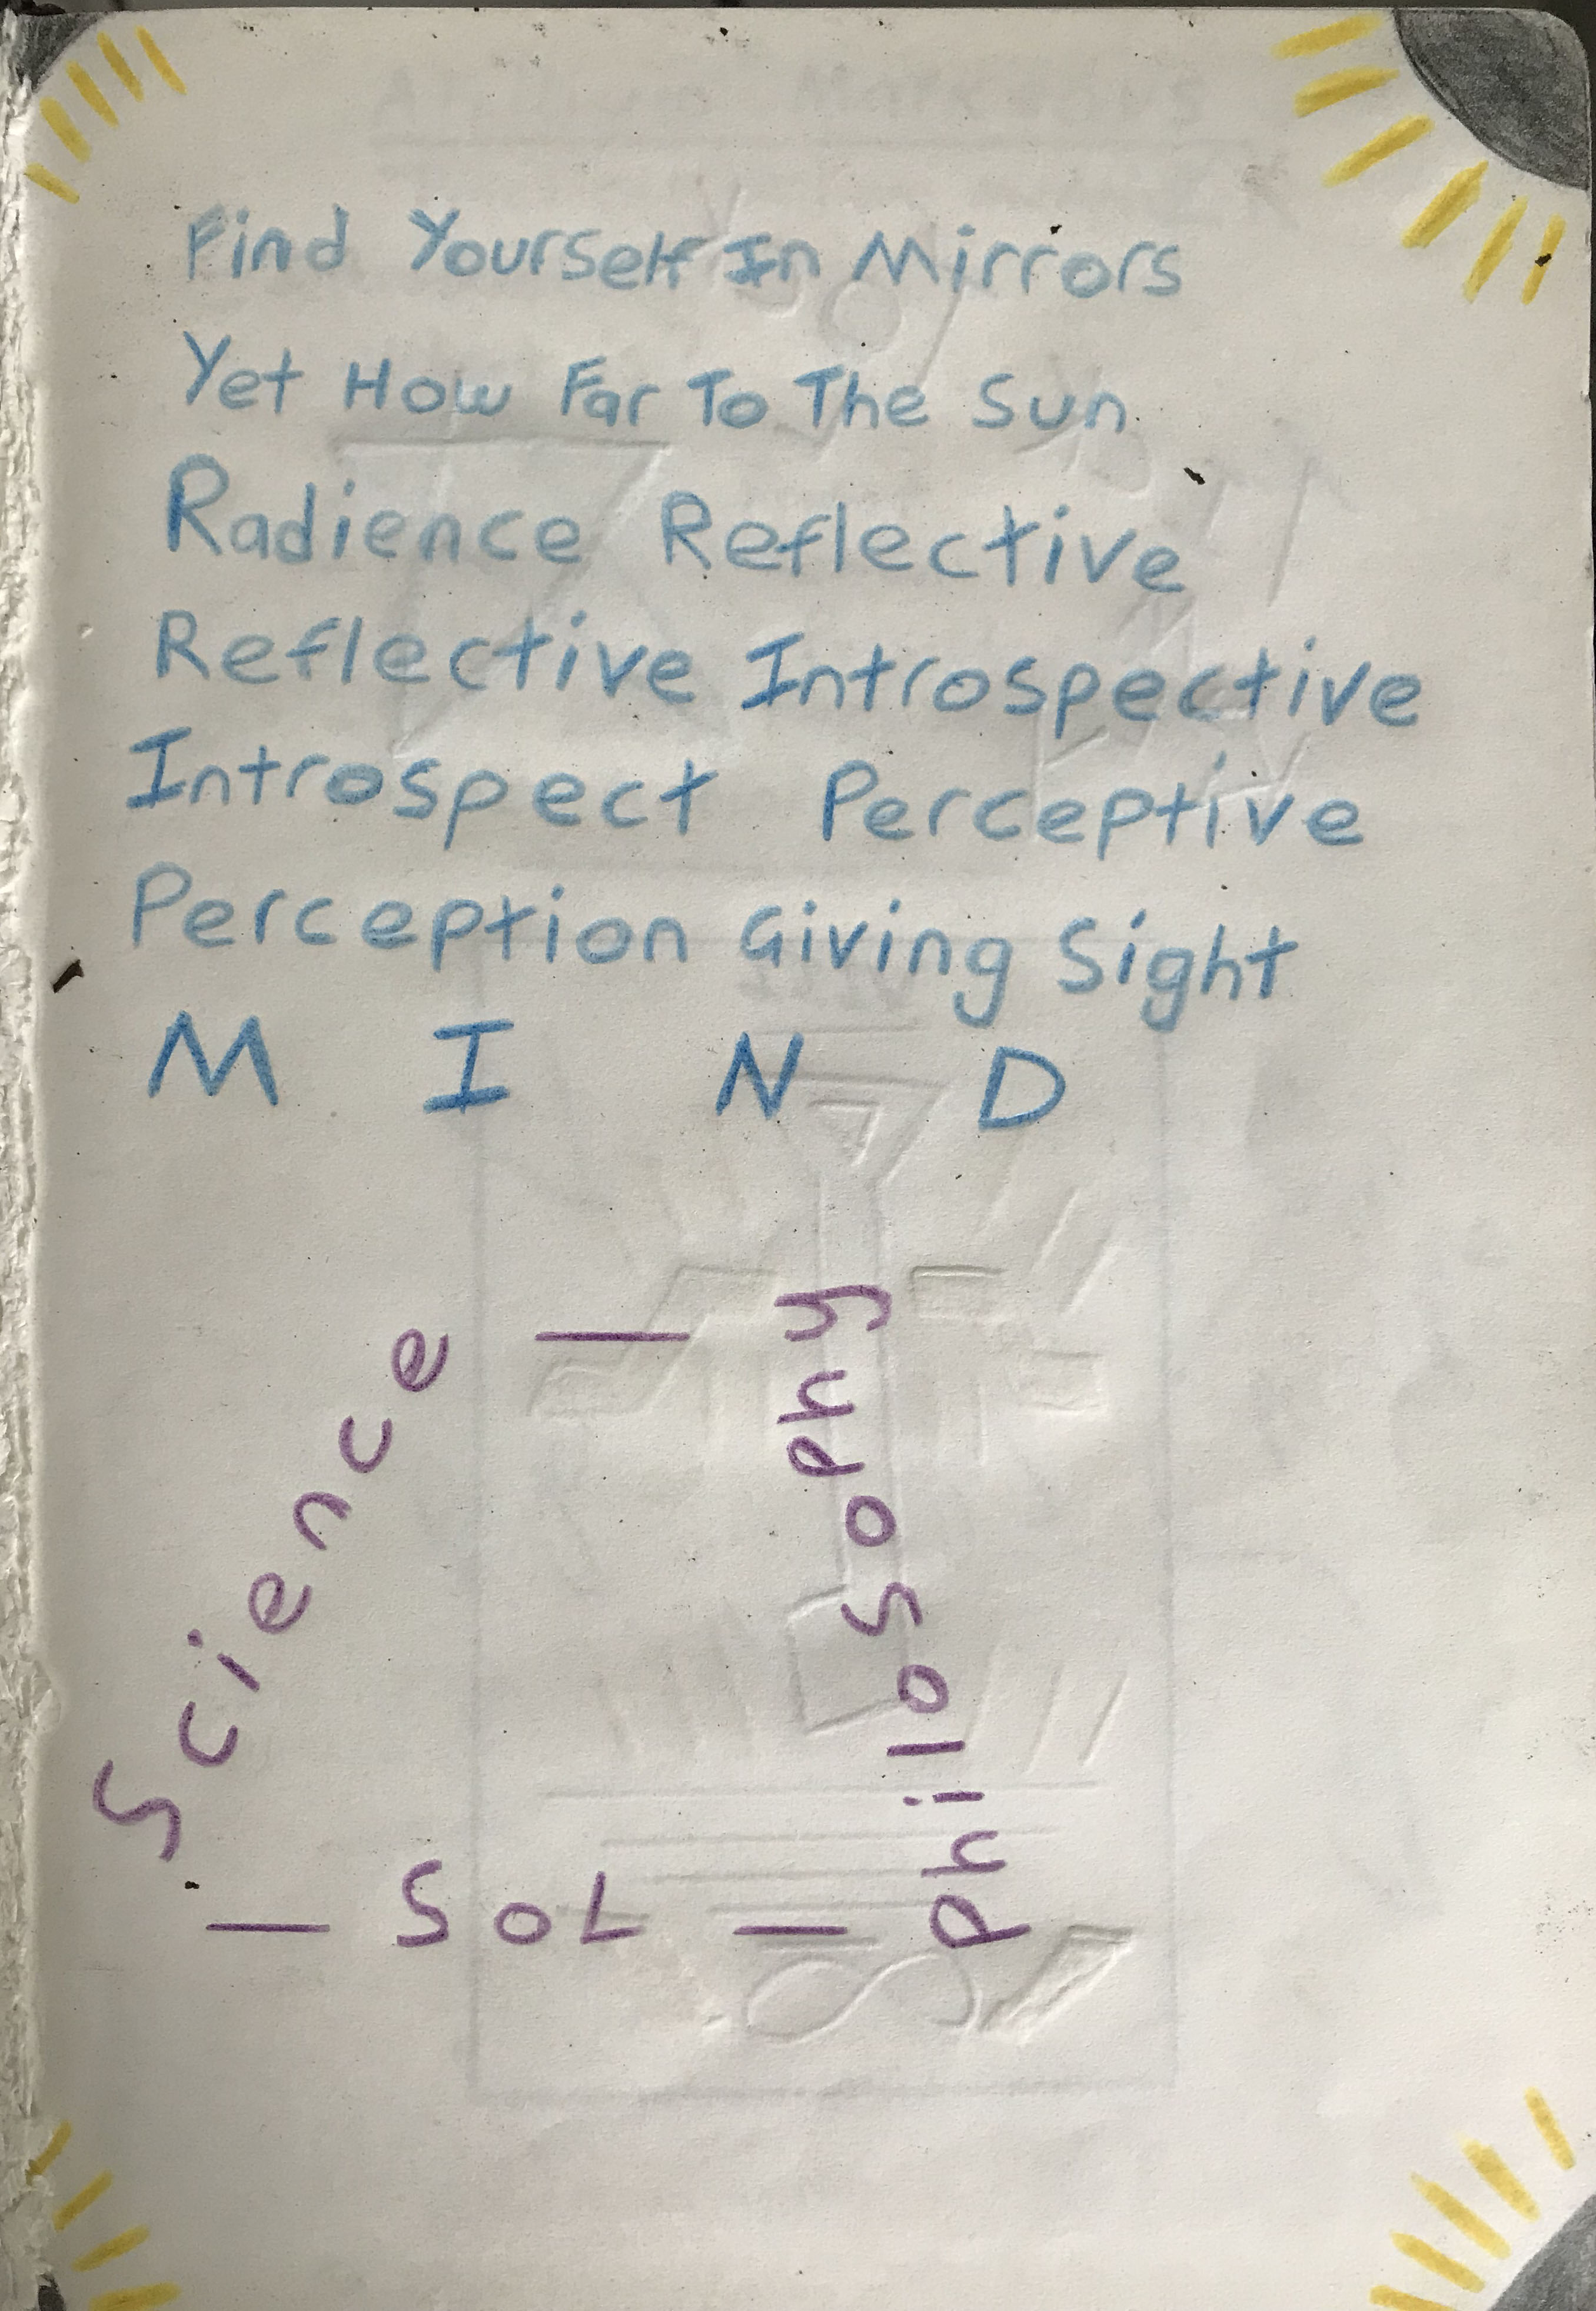 Find Yourself In Mirrors
Yet How Far To The Sun
Radience Reflective
Reflective Introspective
Introspect Perceptive
Perception Giving Sight
M I N D
Science —
Philosophy
— SoL —